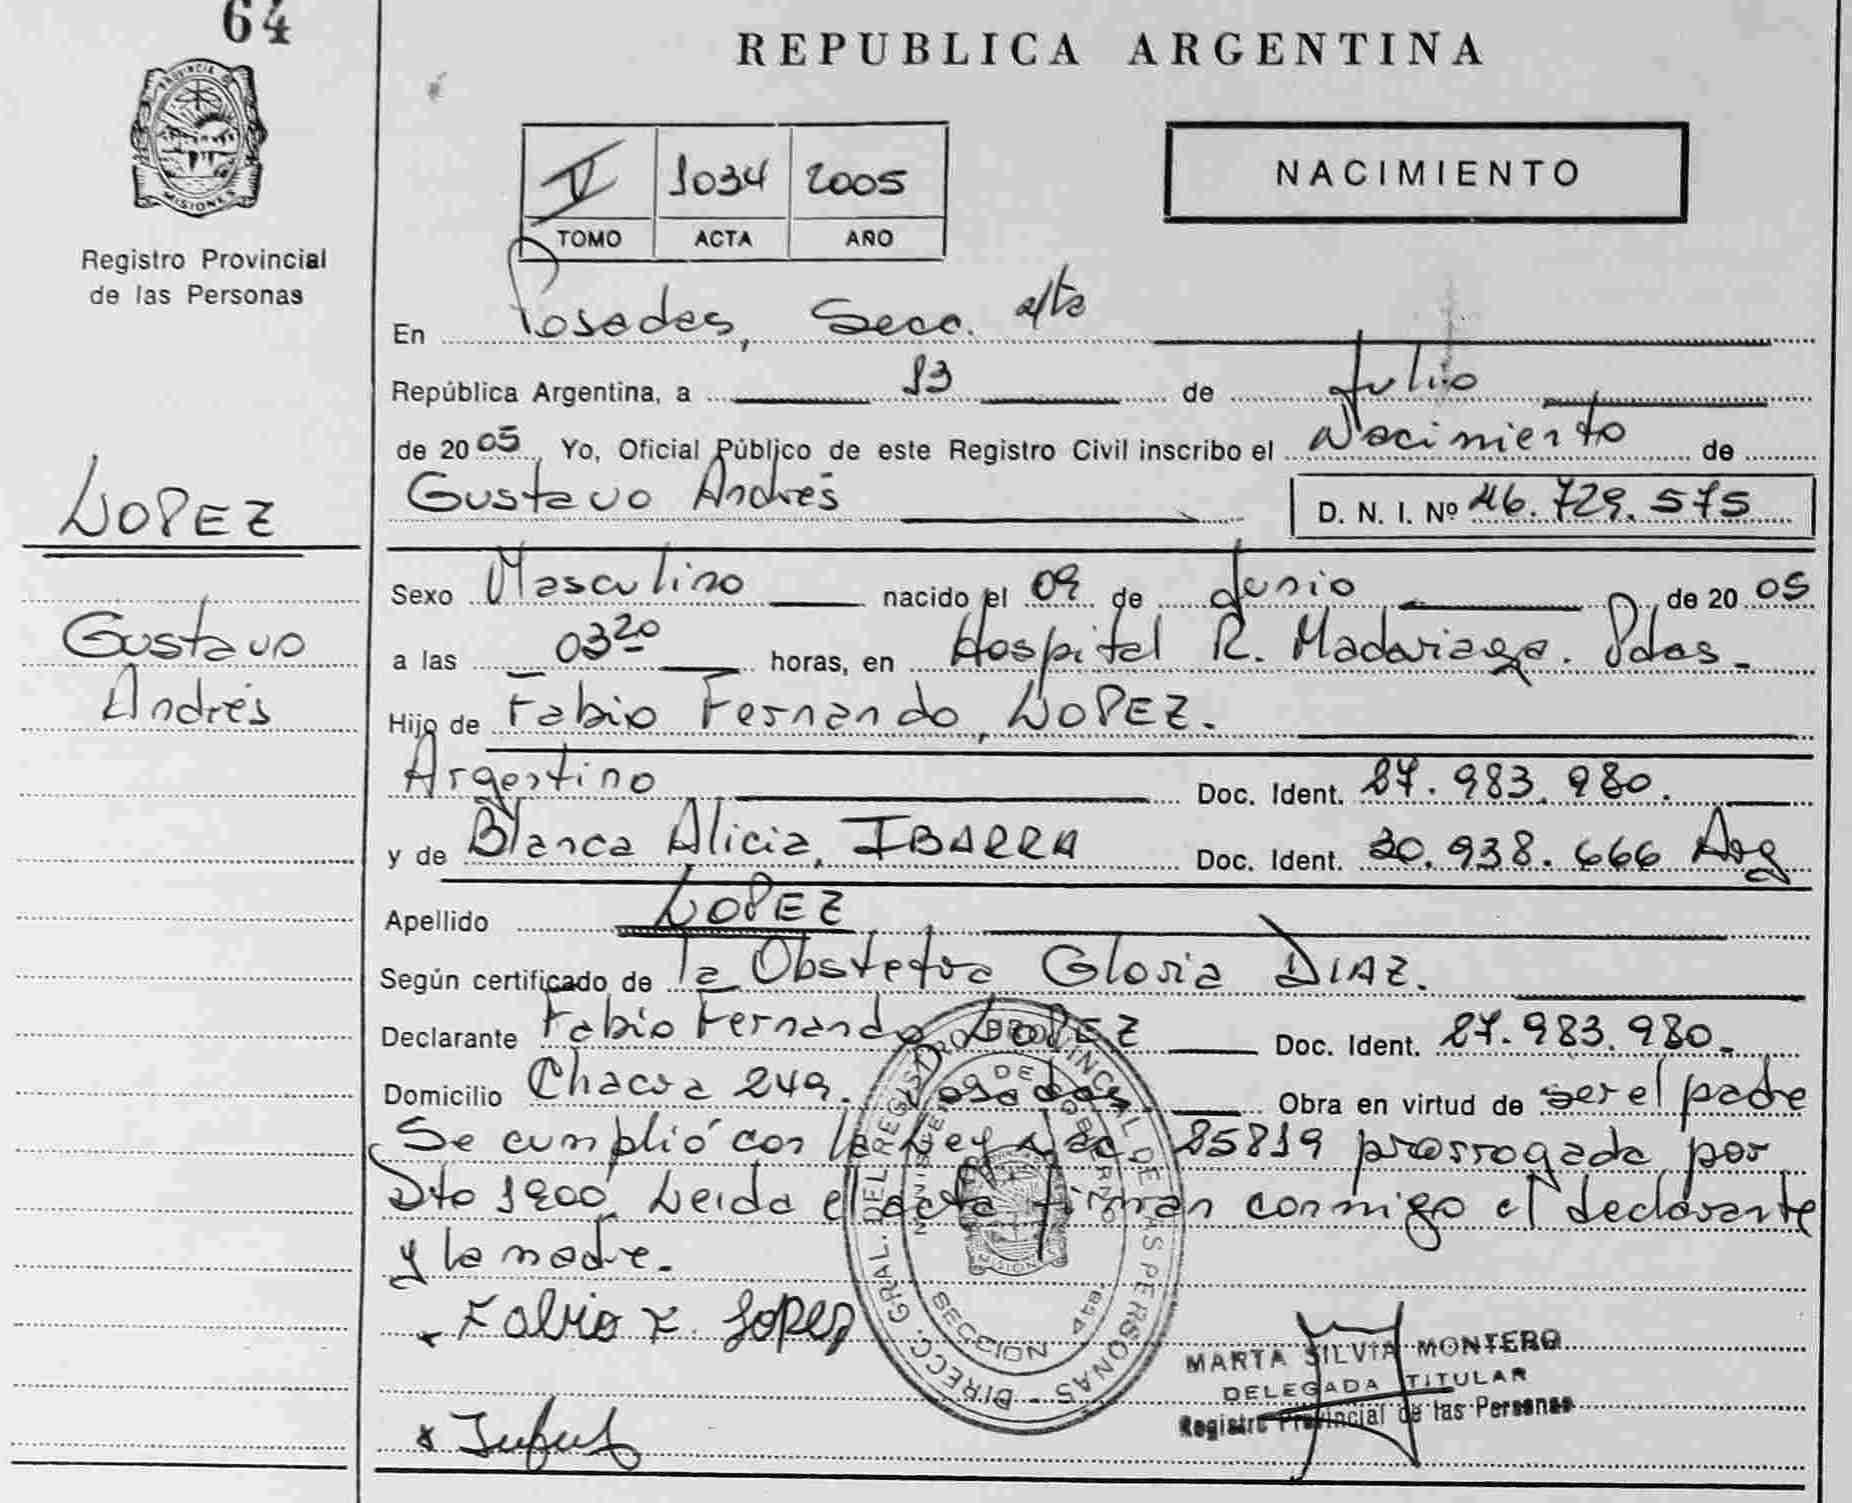 64
REPUBLICA ARGENTINA
PROVINCIA DE MISIONES
Registro Provincial
de las Personas
V 1034 2005
TOMO ACTA AÑO
NACIMIENTO
En Posadas, Secc. 4ta
República Argentina, a 13 de Julio
de 2005 Yo, Oficial Público de este Registro Civil inscribo el Nacimiento de
Gustavo Andrés D. N. I. Nº 46.729.575
LOPEZ
Gustavo
Andrés
Sexo Masculino nacido el 09 de Junio de 2005
a las 03 20 horas, en Hospital R. Madariaga. Pdas.
Hijo de Fabio Fernando, LOPEZ.
Argentino Doc. Ident. 27.983.980.
y de Blanca Alicia, IBARRA Doc. Ident. 30.938.666 Arg
Apellido LOPEZ
Según certificado de la Obstetra Gloria DIAZ.
Declarante Fabio Fernando LOPEZ Doc. Ident. 27.983.980.
Domicilio Chacra 249. Posadas. Obra en virtud de ser el padre
Se cumplió con la Ley Nac. 25819 prorrogada por
Dto 1900. Leida el acta firman conmigo el declarante
y la madre.
Fabio F. Lopez
DIRECC. GRAL. DEL REGISTRO PROVINCIAL DE LAS PERSONAS
MINISTERIO DE GOBIERNO
MISIONES
SECCION 4ta
MARTA SILVIA MONTERO
DELEGADA TITULAR
Registro Provincial de las Personas